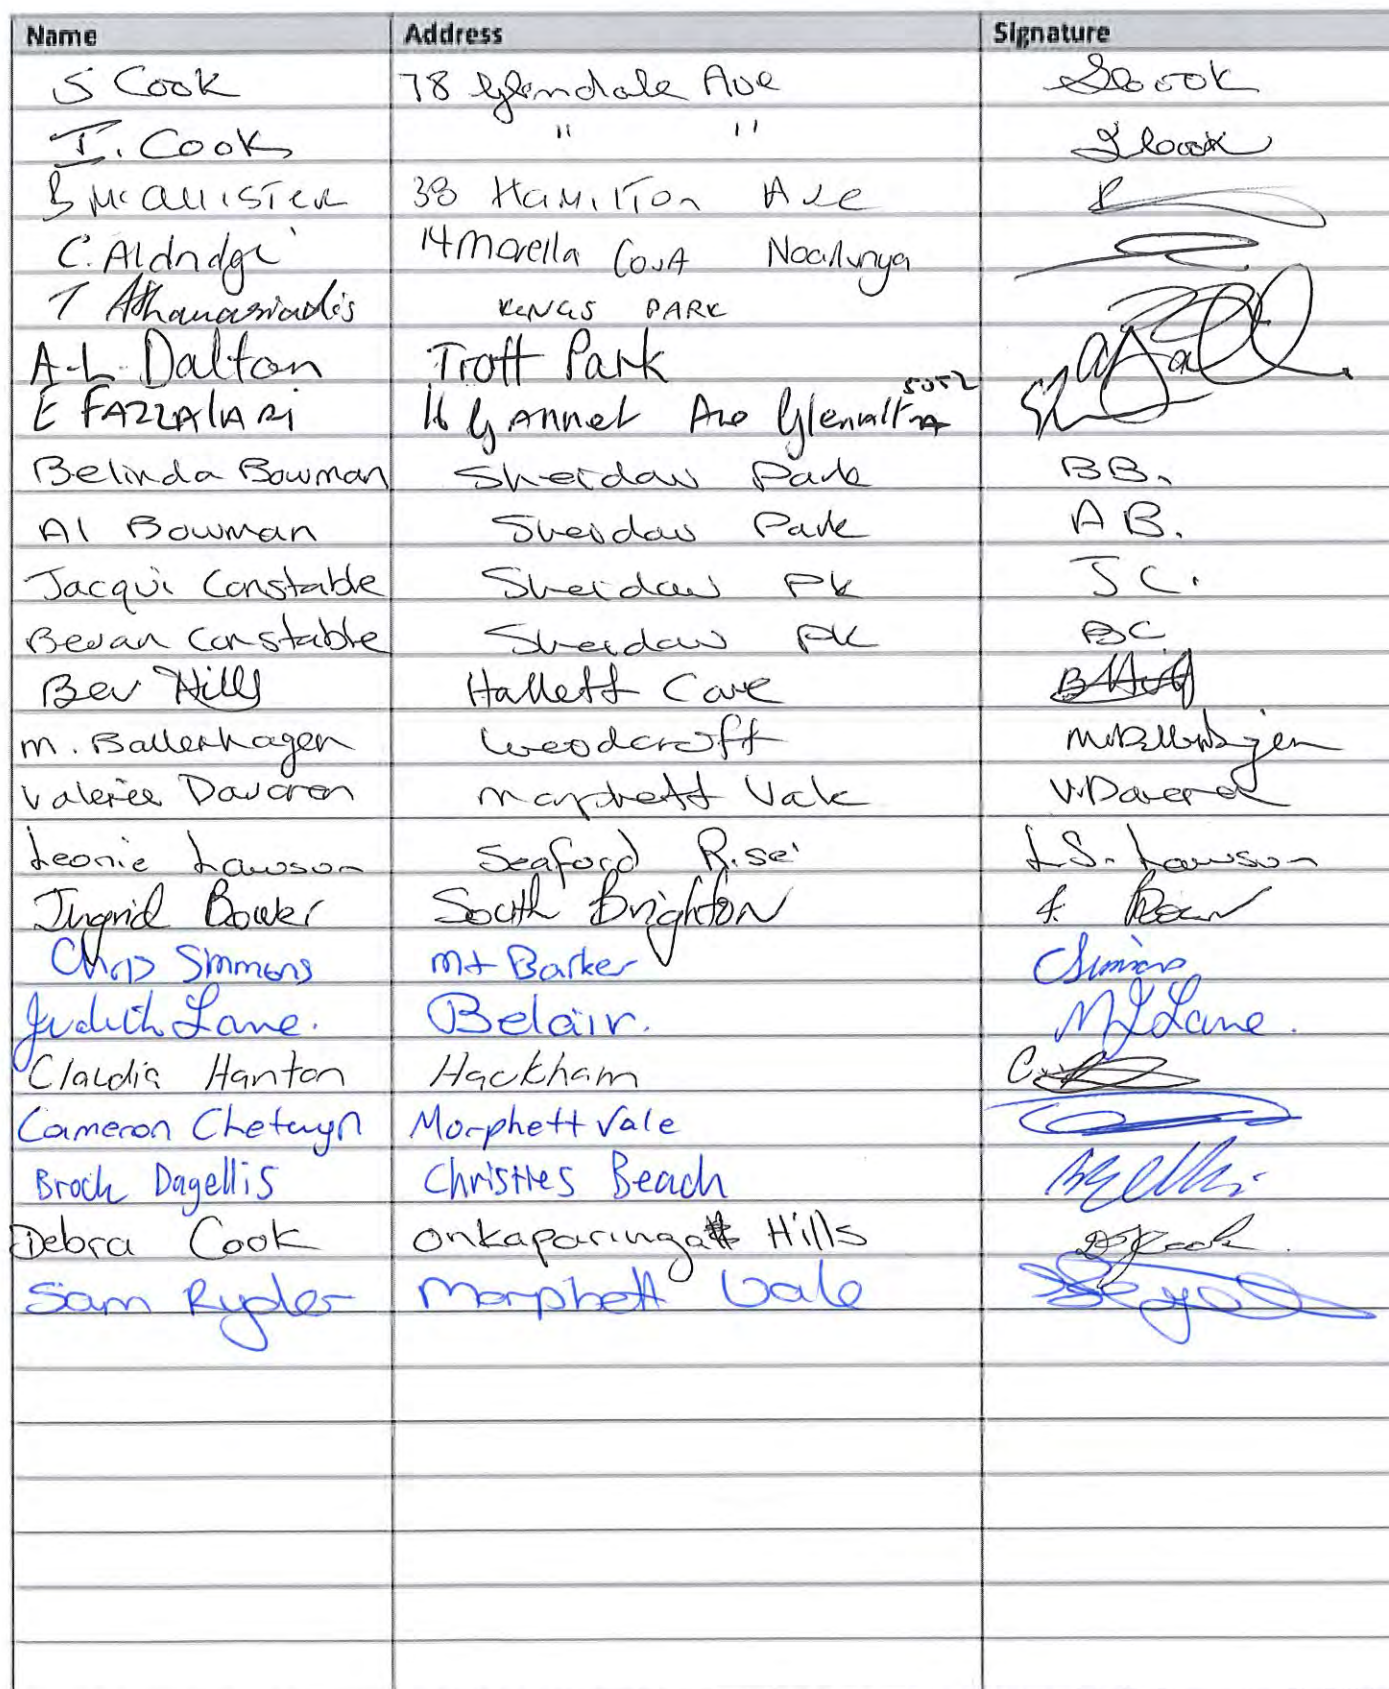 Name Address Signature
S Cook 78 Glendale Ave SCook
I. Cook " " I Cook
B McAllister 38 Hamilton Ave
C. Aldridge 14 Morella Court Noarlunga
T Athanasiadis KINGS PARK
A-L Dalton Trott Park
E FAZZALARI 16 Gannet Ave Glenalta 5052
Belinda Bowman Sheidow Park BB.
Al Bowman Sheidow Park AB.
Jacqui Constable Sheidow Pk JC.
Bevan Constable Sheidow Pk BC
Bev Hills Hallett Cove
M. Ballerhagen Woodcroft
Valeriee Davaren Morphett Vale
Leonie Lawson Seaford Rise L.S. Lawson
Ingrid Bowker South Brighton
Chris Simmons Mt Barker
Judith Lane. Belair. M J Lane.
Claudia Hanton Hackham
Cameron Chetwyn Morphett Vale
Brock Dagellis Christies Beach
Debra Cook Onkaparinga Hills
Sam Ryder Morphett Vale